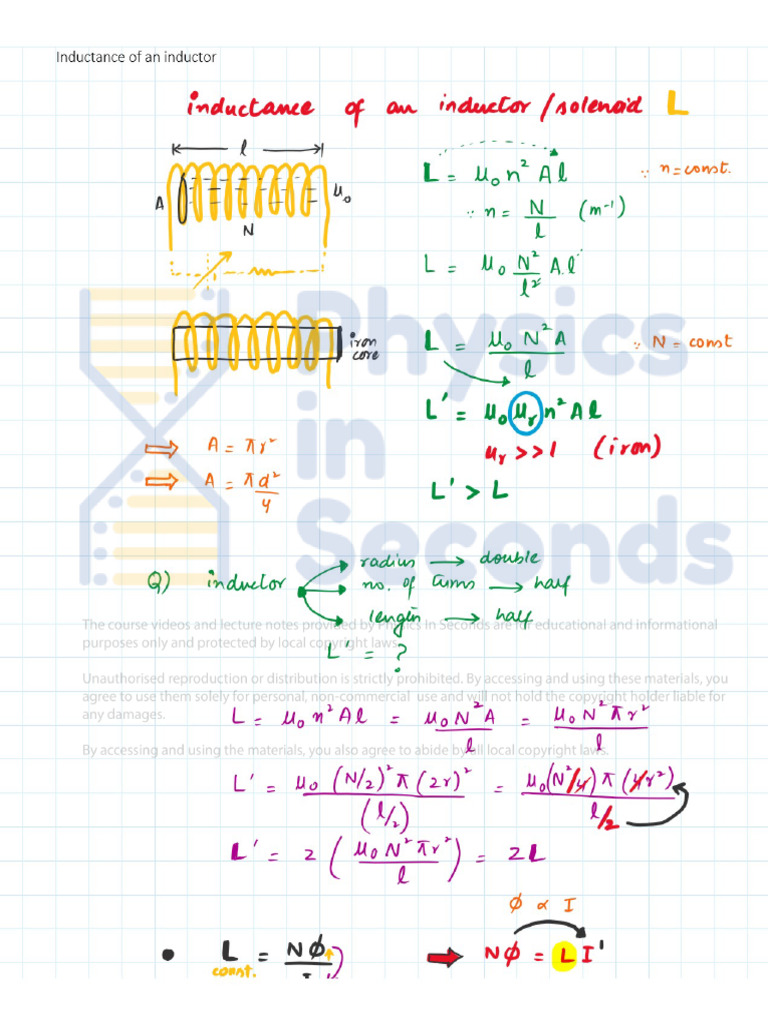 Inductance of an inductor
inductance of an inductor/solenoid L
l
A
N
μ₀
L = μ₀ n² A l ∵ n = const.
∵ n = N/l (m⁻¹)
L = μ₀ N²/l² A.l
iron core
L = μ₀ N² A / l ∵ N = const
L' = μ₀ μᵣ n² A l
μᵣ >> 1 (iron)
⇒ A = πr²
⇒ A = π d²/4
L' > L
Physics
in
Seconds
Q) inductor
radius → double
no. of turns → half
length → half
The course videos and lecture notes provided by Physics In Seconds are for educational and informational
purposes only and protected by local copyright laws.
L' = ?
Unauthorised reproduction or distribution is strictly prohibited. By accessing and using these materials, you
agree to use them solely for personal, non-commercial use and will not hold the copyright holder liable for
any damages.
L = μ₀ n² A l = μ₀ N² A / l = μ₀ N² π r² / l
By accessing and using the materials, you also agree to abide by all local copyright laws.
L' = μ₀ (N/2)² π (2r)² / (l/2) = μ₀ (N²/4) π (4r²) / l/2
L' = 2 (μ₀ N² π r² / l) = 2L
φ ∝ I
• L = Nφ / I ⇒ Nφ = L I'
const.